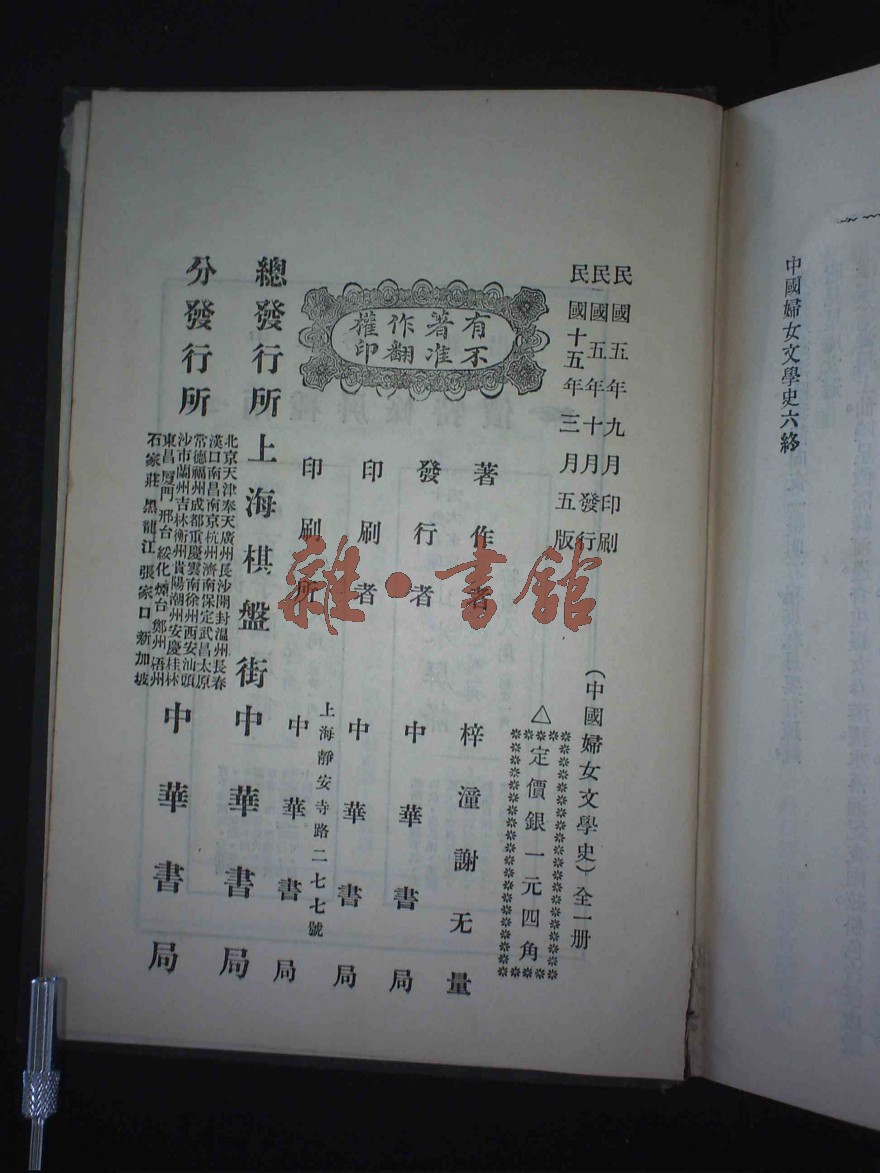 中國婦女文學史六終
民國五年九月印刷
民國五年十月發行
民國十五年三月五版
(中國婦女文學史)全一册
△定價銀一元四角
有著作權
不准翻印
著作者 梓潼謝无量
發行者 中華書局
印刷者 中華書局
上海靜安寺路二七七號
印刷所 中華書局
總發行所 上海棋盤街 中華書局
分發行所
北京天津奉天廣州長沙開封溫州長春
漢口南昌南京杭州濟南保定武昌太原
常德福州成都重慶雲南徐州西安汕頭
沙市蘭州吉林衡州貴陽潮州安慶桂林
東昌厦門邢台綏化煙台鄭州梧州
石家莊 黑龍江 張家口 新加坡
中華書局
雜·書館